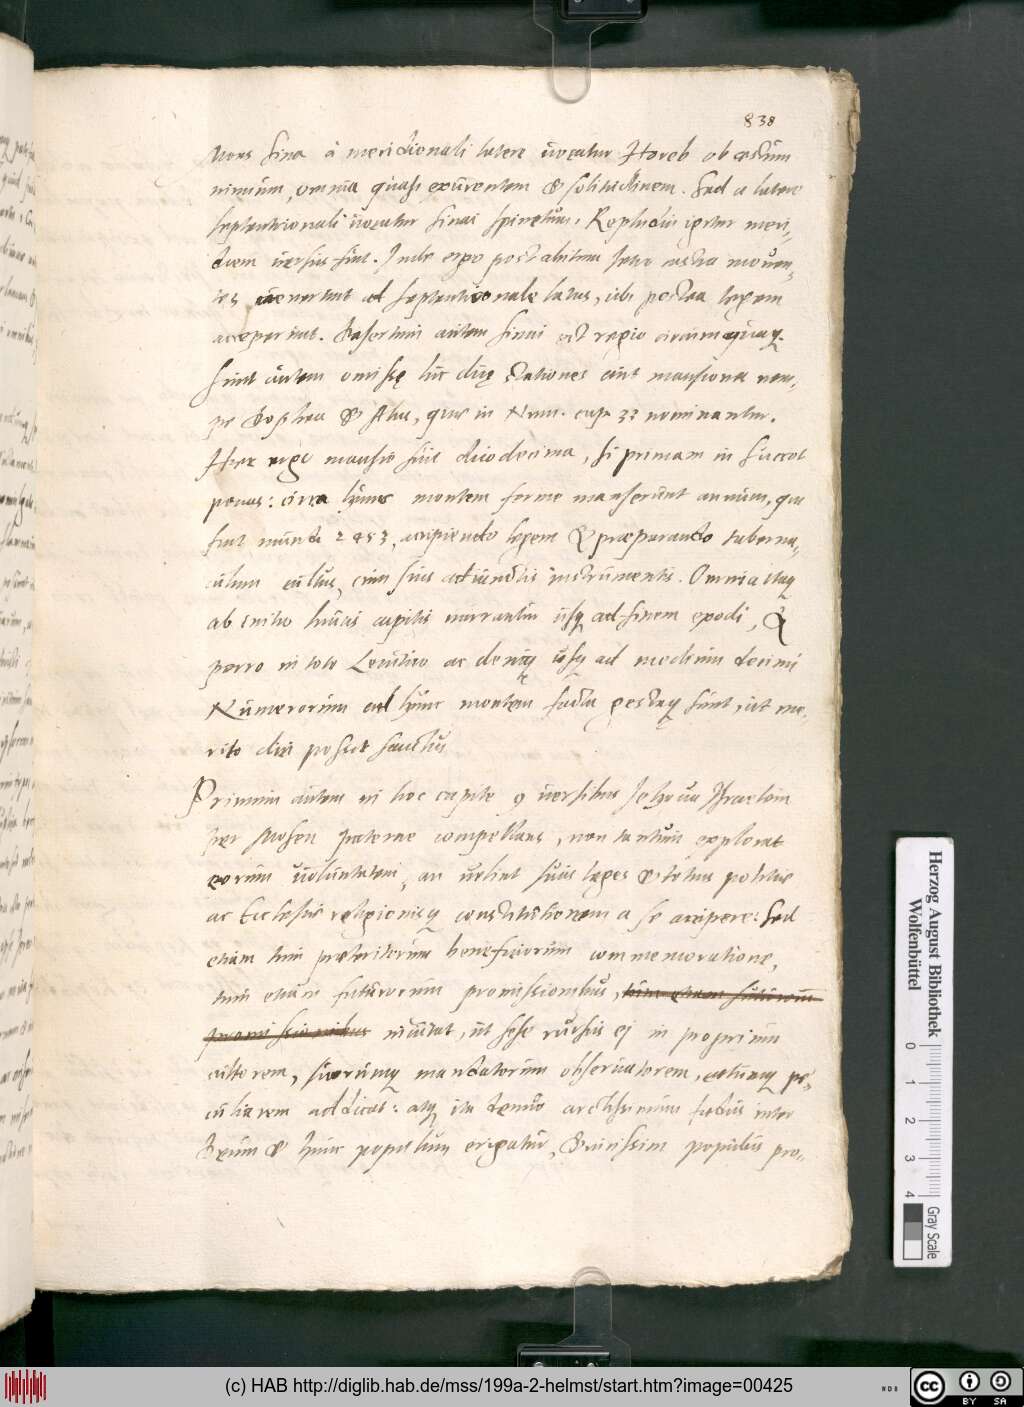 838
Mons sina a meridionali latere vocatur Horeb ob æstum
nimium, omnia quasi exurentem & solitudinem. Sed a latere
septentrionali vocatur sinai spinetum. Rephidim igitur meri-
diem versus fuit. Inde ergo post abitum Jetro castra moven-
tes venerunt ad septentrionale latus, ubi postea legem
acceperunt. Desertum autem sinai est regio circumquaq.
Sunt autem omissę hic duę stationes aut mansiones nem-
pe Dophca & Alus, quae in Num. cap. 33 nominantur.
Haec mansio fuit duodecima, si primam in Suctot
ponas: circa hunc montem ferme manserunt annum, qui
fuit mundi 2453, accipiendo legem & præparando taberna-
culum cultus, cum suis adiunctis instrumentis. Omnia itaq
ab initio huius capitis narrantur usq ad finem exodi, &
porro in toto Levitico ac deniq usq ad medium decimi
Numerorum ad hunc montem facta gestaq sunt, ut me-
rito dici possit sanctus
Primum autem in hoc capite 9 versibus Jehova Israelem
per Mosen paterne compellans, non tantum explorat
eorum voluntatem, an velint suas leges & totius politiæ
ac Ecclesiæ religionisq constitutionem a se accipere: sed
etiam tum præteritorum beneficiorum commemoratione,
tum etiam futurorum promissionibus, tum etiam futurorum
promissionibus invitat, ut sese rursus ej in proprium
cultorem, suorumq mandatorum observatorem, cetumq pe-
culiarem addicat: atq ita denuo arctissimum fœdus inter
Deum & hunc populum erigatur, & vicissim populus pro-
Herzog August Bibliothek
Wolfenbüttel
0 1 2 3 4
Gray Scale
(c) HAB http://diglib.hab.de/mss/199a-2-helmst/start.htm?image=00425
cc BY SA